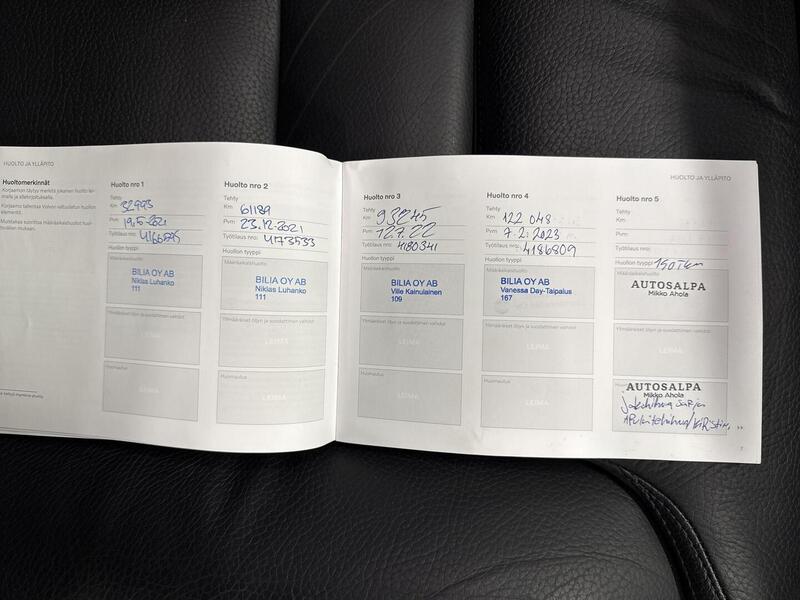 HUOLTO JA YLLÄPITO
Huoltomerkinnät
Korjaamon täytyy merkitä jokainen huolto lei-
malla ja allekirjoituksella.
Huolto nro 1
Tehty
Km 32993
Pvm 19.5.2021
Työtilaus nro:
Huollon tyyppi
Määräaikaishuolto
BILIA OY AB
Niklas Luhanko
111
Ylimääräiset öljyn ja suodattimen vaihdot
LEIMA
Huomautus
LEIMA
Huolto nro 2
Tehty
Km 61189
Pvm 23.12.2021
Työtilaus nro: 4173533
Huollon tyyppi
Määräaikaishuolto
BILIA OY AB
Niklas Luhanko
111
Ylimääräiset öljyn ja suodattimen vaihdot
LEIMA
Huomautus
LEIMA
HUOLTO JA YLLÄPITO
Huolto nro 3
Tehty
Km 93245
Pvm 12.7.22
Työtilaus nro: 4180341
Huollon tyyppi
Määräaikaishuolto
BILIA OY AB
Ville Kainulainen
109
Ylimääräiset öljyn ja suodattimen vaihdot
LEIMA
Huomautus
LEIMA
Huolto nro 4
Tehty
Km 122 048
Pvm 7.2.2023
Työtilaus nro: 4186809
Huollon tyyppi
Määräaikaishuolto
BILIA OY AB
Vanessa Day-Taipalus
167
Ylimääräiset öljyn ja suodattimen vaihdot
LEIMA
Huomautus
LEIMA
Huolto nro 5
Tehty
Km
Pvm
Työtilaus nro:
Huollon tyyppi 150Tkm
Määräaikaishuolto
AUTOSALPA
Mikko Ahola
Ylimääräiset öljyn ja suodattimen vaihdot
LEIMA
Huomautus
AUTOSALPA
Mikko Ahola
jakohihna sarja